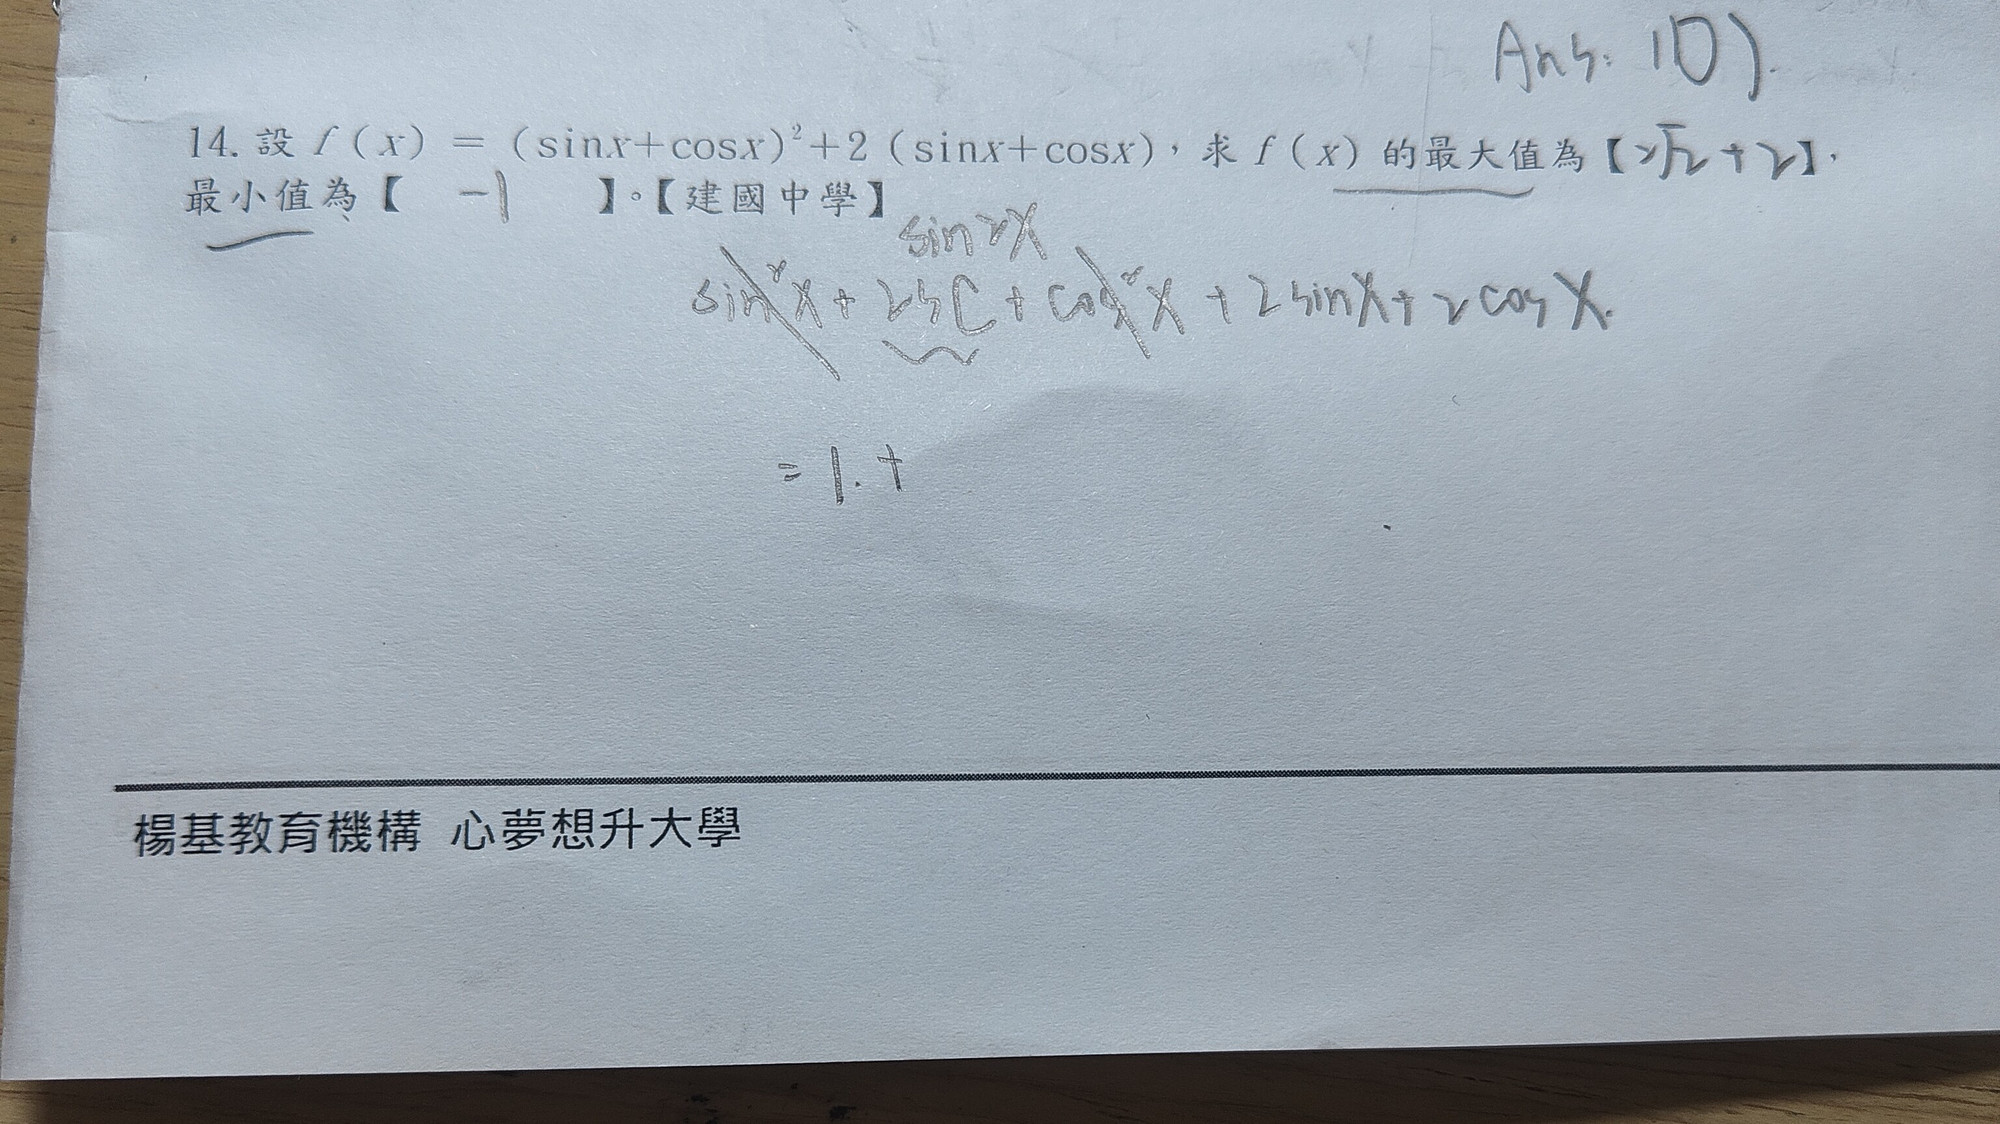 Ans: 10)
14. 設 f(x) = (sinx+cosx)²+2(sinx+cosx),求 f(x) 的最大值為【2√2+2】,
最小值為【 -1 】。【建國中學】
sin2x
sin²x + 2sc + cos²x + 2sinx + 2cosx.
= 1. +
楊基教育機構 心夢想升大學